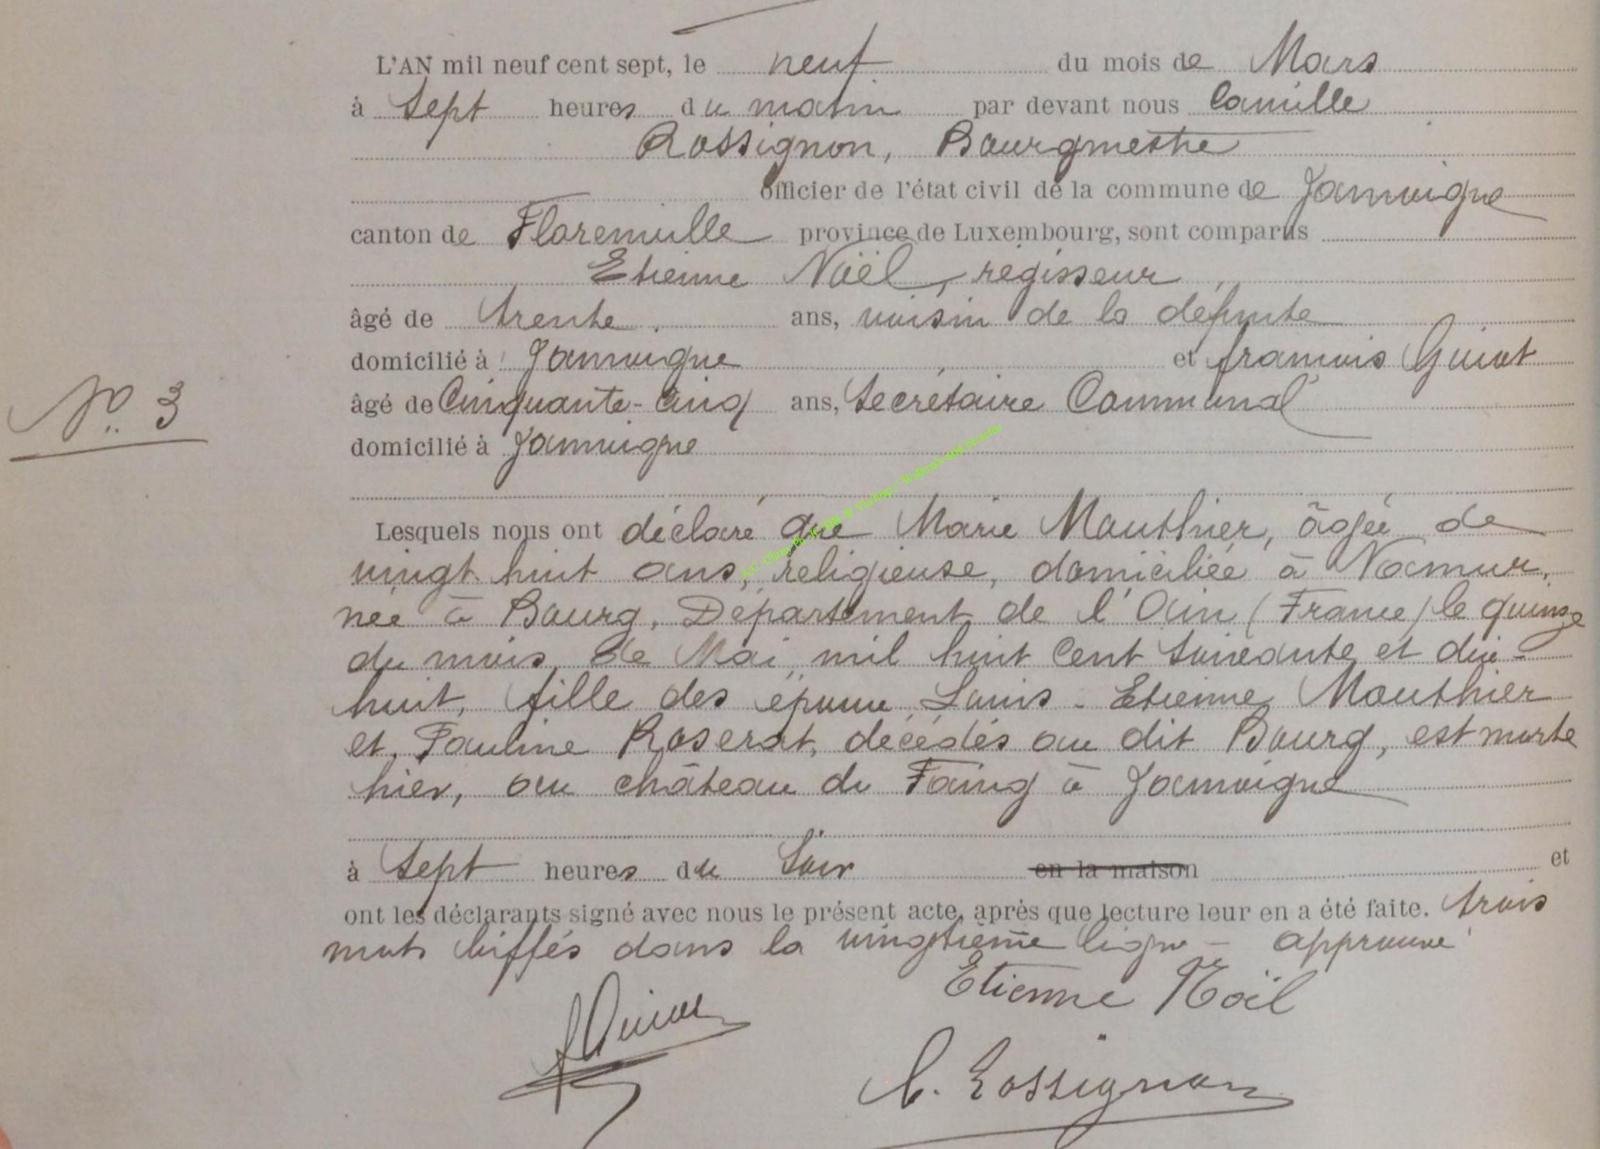 L'AN mil neuf cent sept, le neuf du mois de Mars
à Sept heures du matin par devant nous Camille
Rossignon, Bourgmestre
officier de l'état civil de la commune de Jamoigne
canton de Florenville province de Luxembourg, sont comparus
Etienne Noël, régisseur
âgé de trente ans, voisin de la défunte
domicilié à Jamoigne et françois Guiot
N° 3
âgé de Cinquante-cinq ans, Secrétaire Communal
domicilié à Jamoigne
Lesquels nous ont déclaré que Marie Mouthier, âgée de
vingt huit ans, religieuse, domiciliée à Namur,
née à Bourg, Département de l'Ain (France) le quinze
du mois de Mai mil huit Cent soixante et dix-
huit, fille des époux Louis-Etienne Mouthier
et Pauline Roserat, décédés au dit Bourg, est morte
hier, au château du Faing à Jamoigne
à Sept heures du Soir en la maison et
ont les déclarants signé avec nous le présent acte, après que lecture leur en a été faite. trois
mots biffés dans la vingtième ligne - approuvé
Etienne Noël
F Guiot
C. Rossignon